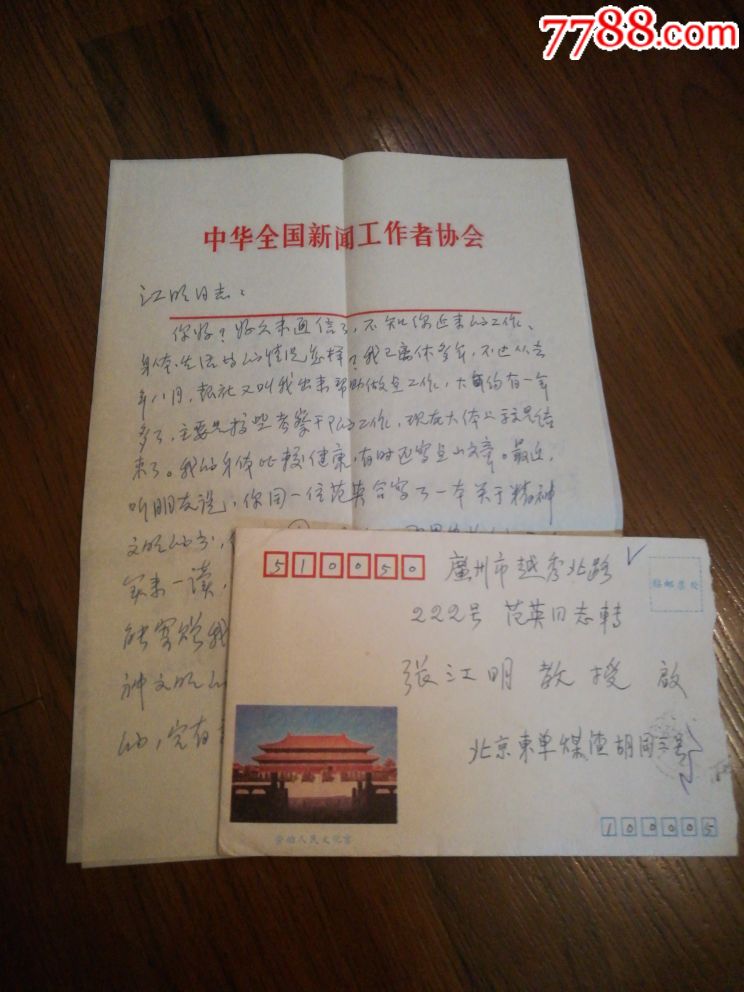 7788.com
中华全国新闻工作者协会
江明同志：
你好？好久未通信了，不知你近来的工作、
身体、生活的情况怎样？我已离休多年，不过从去
年八月，报社又叫我出来帮助做点工作，大约有一年
多了，主要是搞些考察干P的工作，现在大体上交是结
来了。我的身体比较健康，有时还写点小文章。最近，
听朋友说，你同一位范英合写了一本关于精神
文明的书，
一读，
能寄给我
神文明的
的，
510050
廣州市越秀北路
222号 范英同志轉
張江明教授啟
北京東单煤渣胡同
100005
劳动人民文化宫
貼邮票处